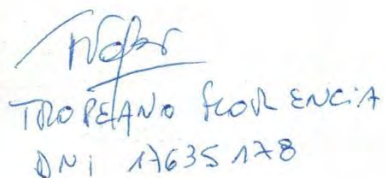 TROPEANO FLORENCIA
DNI 17635178